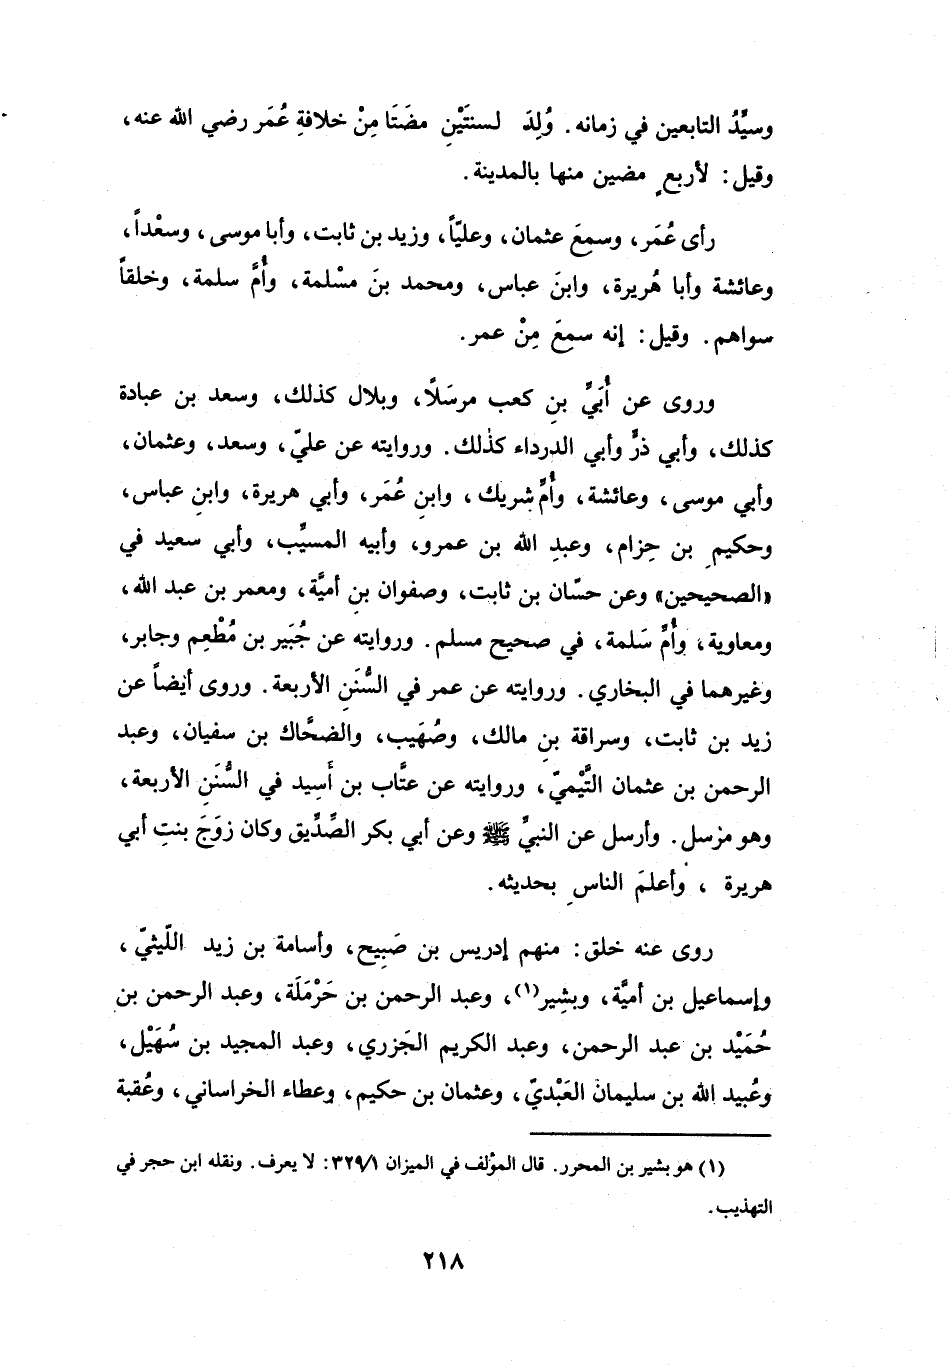 وسيِّدُ التابعين في زمانه. وُلِدَ لسنتَيْنِ مضَتَا مِنْ خلافةِ عُمَر رضي الله عنه،
وقيل: لأربعٍ مضين منها بالمدينة.
رأى عُمَر، وسمِعَ عثمان، وعليّاً، وزيد بن ثابت، وأبا موسى، وسعْداً،
وعائشة وأبا هُريرة، وابنَ عباس، ومحمد بنَ مسْلمة، وأُمَّ سلمة، وخلقاً
سواهم. وقيل: إنه سمِعَ مِنْ عمر.
وروى عن أُبَيِّ بنِ كعب مرسَلًا، وبلال كذلك، وسعد بن عبادة
كذلك، وأبي ذرٍّ وأبي الدرداء كذٰلك. وروايته عن عليّ، وسعد، وعثمان،
وأبي موسى، وعائشة، وأُمِّ شريك، وابنِ عُمَر، وأبي هريرة، وابنِ عباس،
وحكيمِ بن حِزام، وعبدِ الله بن عمرو، وأبيه المسيِّب، وأبي سعيد في
«الصحيحين» وعن حسّان بن ثابت، وصفوان بنِ أميَّة، ومعمر بن عبد الله،
ومعاوية، وأُمِّ سَلمة، في صحيح مسلم. وروايته عن جُبَير بن مُطْعِم وجابر،
وغيرهما في البخاري. وروايته عن عمر في السُّنَنِ الأربعة. وروى أيضاً عن
زيد بن ثابت، وسراقة بنِ مالك، وصُهَيب، والضحَّاك بن سفيان، وعبد
الرحمن بن عثمان التَّيْميّ، وروايته عن عتَّاب بن أَسِيد في السُّنَنِ الأربعة،
وهو مرْسل. وأرسل عن النبيِّ ﷺ وعن أبي بكر الصِّدِّيق وكان زوَجَ بنتِ أبي
هريرة ، وأعلمَ الناسِ بحديثه.
روى عنه خلق: منهم إدريس بن صَبِيح، وأسامة بن زيد اللّيثيّ،
وإسماعيل بن أميَّة، وبشِير(١)، وعبد الرحمن بن حَرْمَلَة، وعبد الرحمن بن
حُمَيْد بن عبد الرحمن، وعبد الكريم الجَزري، وعبد المجيد بن سُهَيْل،
وعُبيد الله بن سليمان العَبْديّ، وعثمان بن حكيم، وعطاء الخراساني، وعُقبة
(١) هو بشير بن المحرر. قال المؤلف في الميزان ٣٢٩/١: لا يعرف. ونقله ابن حجر في
التهذيب.
٢١٨